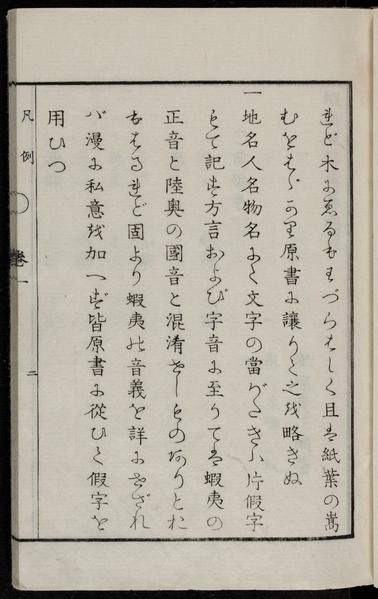 れど木にゑるもわづらはしく且は紙葉の嵩
むをはゞかり原書に讓りて之を略きぬ
一地名人名物名にて文字の當がたきハ片假字
もて記す方言および字音に至りては蝦夷の
正音と陸奧の國音と混淆せしものありとお
もはるれど固より蝦夷の音義を詳にせざれ
バ漫に私意を加へず皆原書に從ひて假字を
用ひつ
凡例
卷一
二